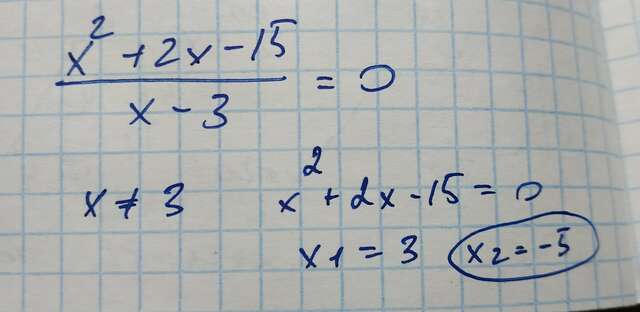 x² + 2x - 15
x - 3
= 0
x ≠ 3
x² + 2x - 15 = 0
x1 = 3
x2 = -5